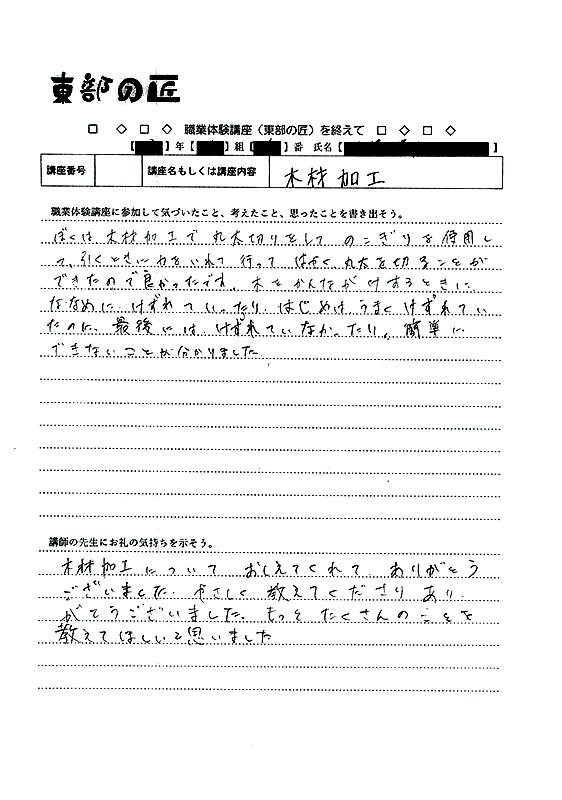 東部の匠
□ ◇ □ ◇ 職業体験講座（東部の匠）を終えて □ ◇ □ ◇
【 】年【 】組【 】番 氏名【 】
講座番号 講座名もしくは講座内容 木材加工
職業体験講座に参加して気づいたこと、考えたこと、思ったことを書き出そう。
ぼくは木材加工で丸太切りをして のこぎりを使用し
て、引くときに力をいれて 行って はやく丸太を切ることが
できたので良かったです。木をかんながけするときに
ななめに けずれていったり、はじめは うまくけずれてい
たのに、最後には けずれていなかったり、簡単に
できないことが分かりました
講師の先生にお礼の気持ちを示そう。
木材加工について おしえてくれて ありがとう
ございました。やさしく 教えてくださり あり
がとうございました。もっと たくさんのことを
教えてほしいと思いました